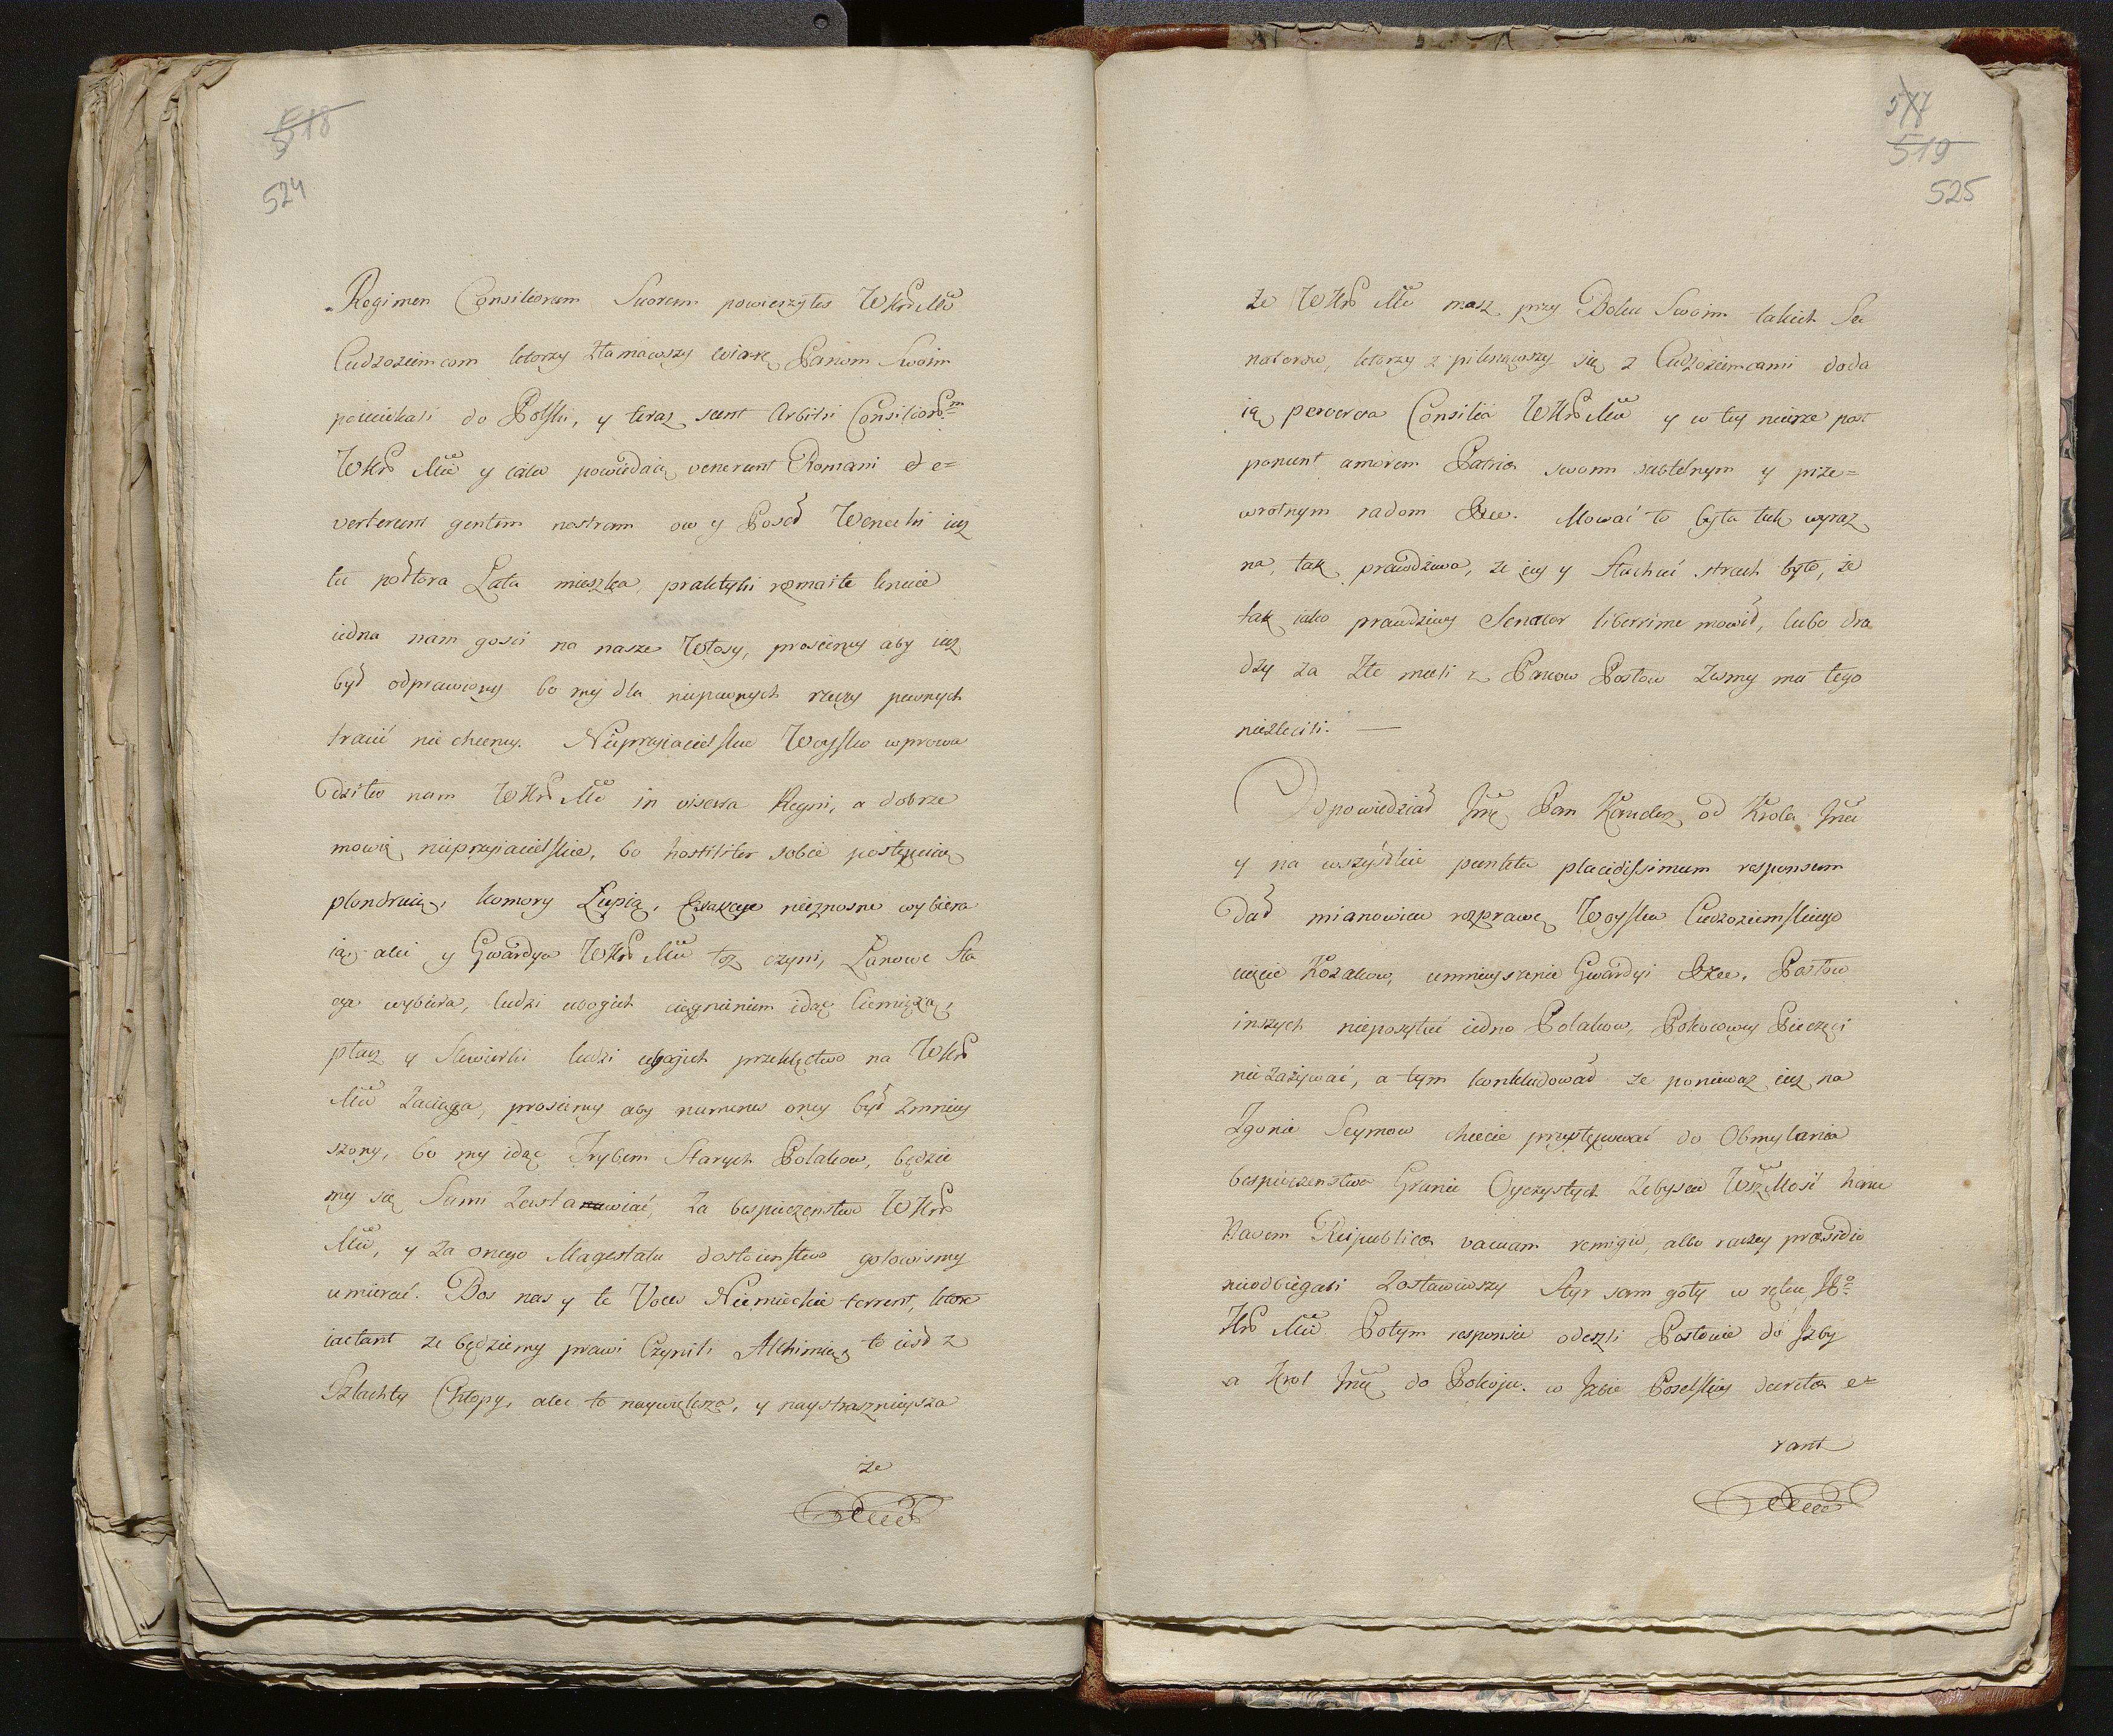 518
524
Regimen Consiliorum Suorum powierzyłes WKrMci
Cudzoziemcom ktorzy złamawszy wiarę Panom Swoim
pouciekali do Polski, y teraz sunt Arbitri Consilior~m
WKr Mci y cału powiedaią venerunt Romani et e=
verterunt gentem nostram ow y Poseł Wenecki iusz
tu połtora Lata mieszka, praktyki rozmaite knuie
iedna nam gosci na nasze Włosy, prosiemy aby iusz
był odprawiony bo my dla niepewnych rzeczy pewnych
tracić nie chcemy. Nieprzyiacielskie Woysko wprowa
dziło nam WKr Mci in viscera Regni, a dobrze
mowię nieprzyiacielskie, bo hostiliter sobie postępuią
plondruią, komory Łupią, Exakcye nieznosne wybiera
ią, ale y Gwardya WKr Mci toz czyni, Lanowe Sta
cye wybiera, ludzi ubogich ciągnieniem idąc ciemięzą,
płacz y Skwierki ludzi ubogich przeklęctwo na WKr
Mci zaciąga, prosiemy aby numerus oney był zmniey
szony, bo my idąc Trybem Starych Polakow, będzie
my się Sami zastawiać, za bespieczenstwo WKr
Mci, y za onego Magestatu dostoienstwo gotowismy
umierać. Dos nas y te Voces Niemieckie terrent, ktore
iactant ze będziemy prawi Czynili Alchimią to iest z
Szlachty Chłopy, ale to naywiększa, y naystrasznieysza
ze
577
519
525
ze WKr Mci masz przy Boku Swoim takich Se
natorow, ktorzy z piknąwszy się z Cudzoziemcami doda
ią perversa Consilia WKr Mci y w tey mierze post
ponunt amorem Patriæ swoim subtelnym y prze=
wrotnym radom &ce. Mować to była tak wyraz
na, tak prawdziwa, ze iey y Słuchać strach było, ze
tak iako prawdziwy Senator liberrime mowił, lubo dru
dzy za złe mieli z Panow Posłow zesmy mu tego
niezlecili. —
Odpowiedział Jmę Pan Kanclerz od Krola Jmci
y na wszystkie punkta placidissimum responsum
dał mianowicie rozprawę Woyska Cudzoziemskiego
ucięcie Kozakow, umnieyszenie Gwardyi &ce. Posłow
inszych nieposyłać iedno Polakow, Pokoiowey Pieczęci
nie zazywać, a tym konkludował ze poniewaz iusz na
Zgonie Seymow chcecie przystępować do Obmyslania
bespieczenstwa Granic Oyczystych zebyscie WszMosć hanc
Navem Reipublicæ vacuam remigio, albo raczey præsidio
nieodbiegali zostawiwszy Styr sam goły w ręku Jo
Kr Mci. Potym responsie odeszli Posłowie do Jzby
a Krol Jmę do Pokoju. w Jzbie Poselskiey decreta e=
rant